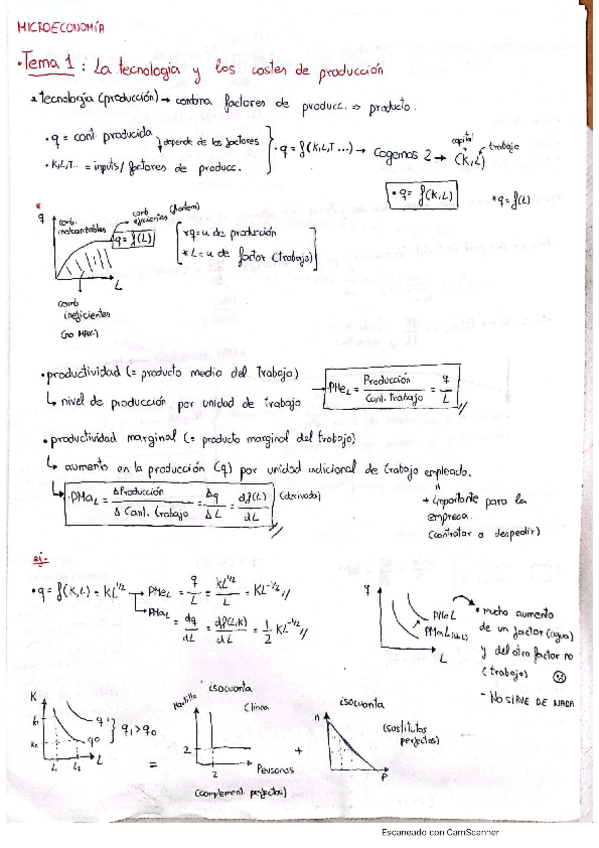 MICROECONOMÍA
· Tema 1 : La tecnologia y los costes de producción
* tecnología (producción) → combina factores de producc. ⇒ producto.
· q = cant. producida
depende de los factores
· K,L,T... = inputs/ factores de producc.
· q = f(K,L,T...) → cogemos 2 → (K,L)
capital
trabajo
· q = f(K,L)
* q = f(L)
q
comb. inalcanzables
comb eficientes (frontera)
q = f(L)
L
comb ineficientes
(no MAX.)
* q = u de producción
* L = u de factor (trabajo)
· productividad (= producto medio del trabajo)
↳ nivel de producción por unidad de trabajo
→ PMeL = Producción / Cant. trabajo = q / L
· productividad marginal (= producto marginal del trabajo)
↳ aumento en la producción (q) por unidad adicional de trabajo empleado.
↳ · PMaL = Δ Producción / Δ Cant. trabajo = Δq / ΔL = df(L) / dL (derivada)
+ importante para la
empresa.
(contratar o despedir)
ej-
· q = f(K,L) = KL^1/2 → PMeL = q / L = KL^1/2 / L = KL^-1/2
→ PMaL = dq / dL = df(L,K) / dL = 1/2 KL^-1/2
q
PMeL
PMaL
L
· mucho aumento
de un factor (agua)
y del otro factor no
(trabajo)
- NO SIRVE DE NADA
K
q1
q0
q1 > q0
L1 L2 L
=
isocuanta
Martillo
Clínea
2
2
Personas
(complement. perfectos)
+
isocuanta
(sustitutos
perfectos)
M
P
Escaneado con CamScanner